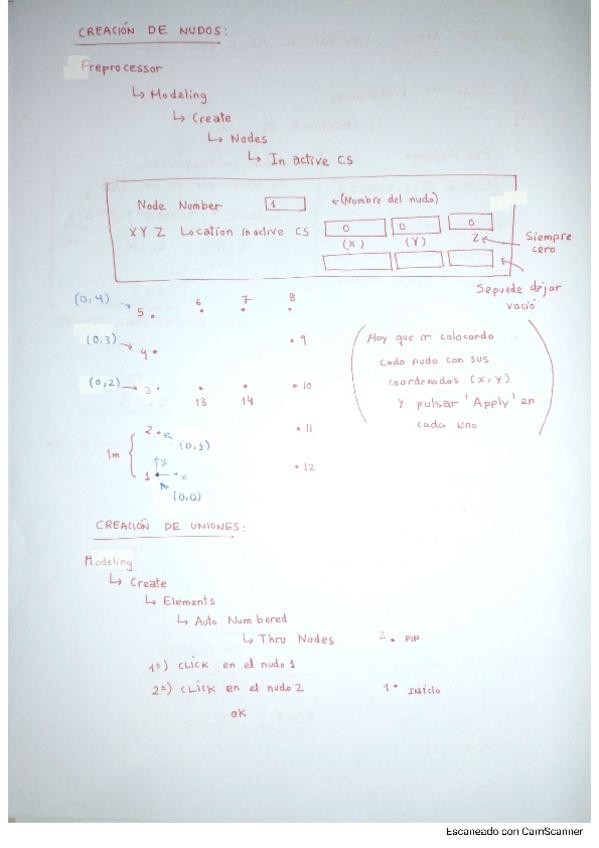 CREACIÓN DE NUDOS:
Preprocessor
↳ Modeling
↳ Create
↳ Nodes
↳ In active CS
Node Number 1 ←(Nombre del nudo)
X Y Z Location in active CS 0 0 0
(X) (Y) Z
Siempre cero
Se puede dejar vació
(0,4) 5 6 7 8
(0,3) 4 9
(0,2) 3 13 14 10
2 (0,1) 11
1m
1 y x 12
(0,0)
(Hay que ir colocando
cada nudo con sus
coordenadas (x,y)
y pulsar 'Apply' en
cada uno)
CREACIÓN DE UNIONES:
Modeling
↳ Create
↳ Elements
↳ Auto Numbered
↳ Thru Nodes
2. FIN
1º) CLICK en el nudo 1
2º) CLICK en el nudo 2
1. INICIO
OK
Escaneado con CamScanner